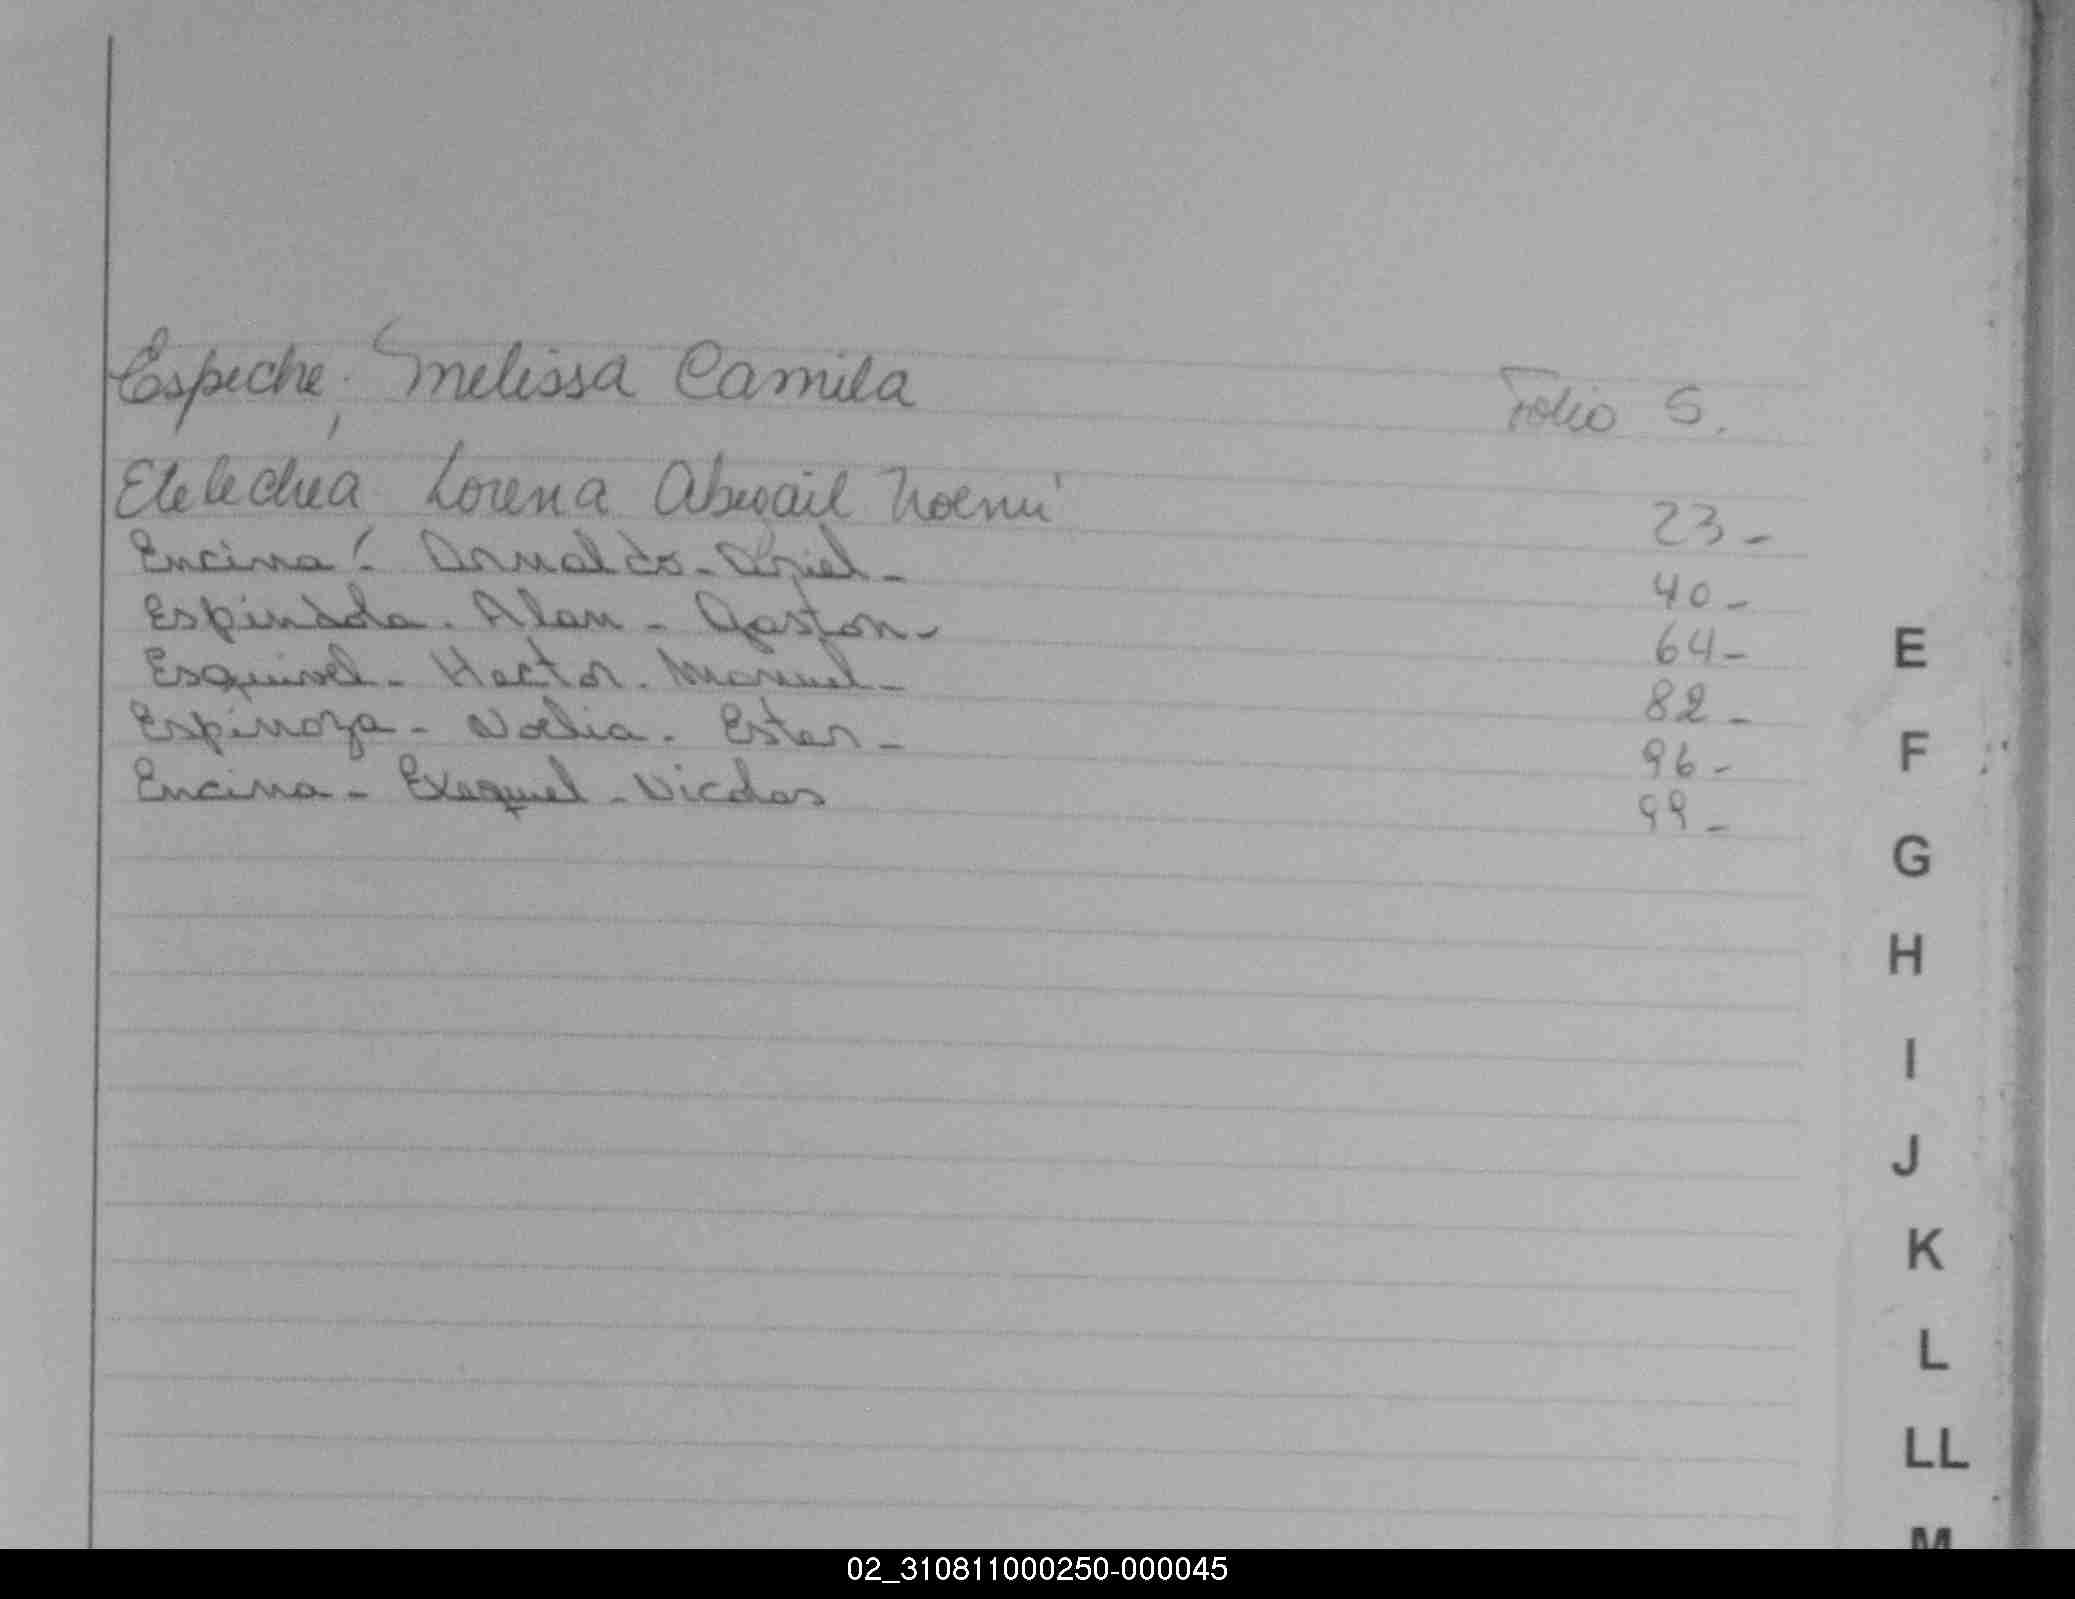 Espeche, Melissa Camila Folio 5.
Lorena Abigail Noemí 23-
Encina! Arnaldo - Ariel - 40-
Espindola - Alan - Gaston - 64-
Esquivel - Hector - Manuel - 82-
Espinoza - Noelia - Ester - 96-
Encina - Exequiel - Nicolas 99-
E
F
G
H
I
J
K
L
LL
M
02_310811000250-000045